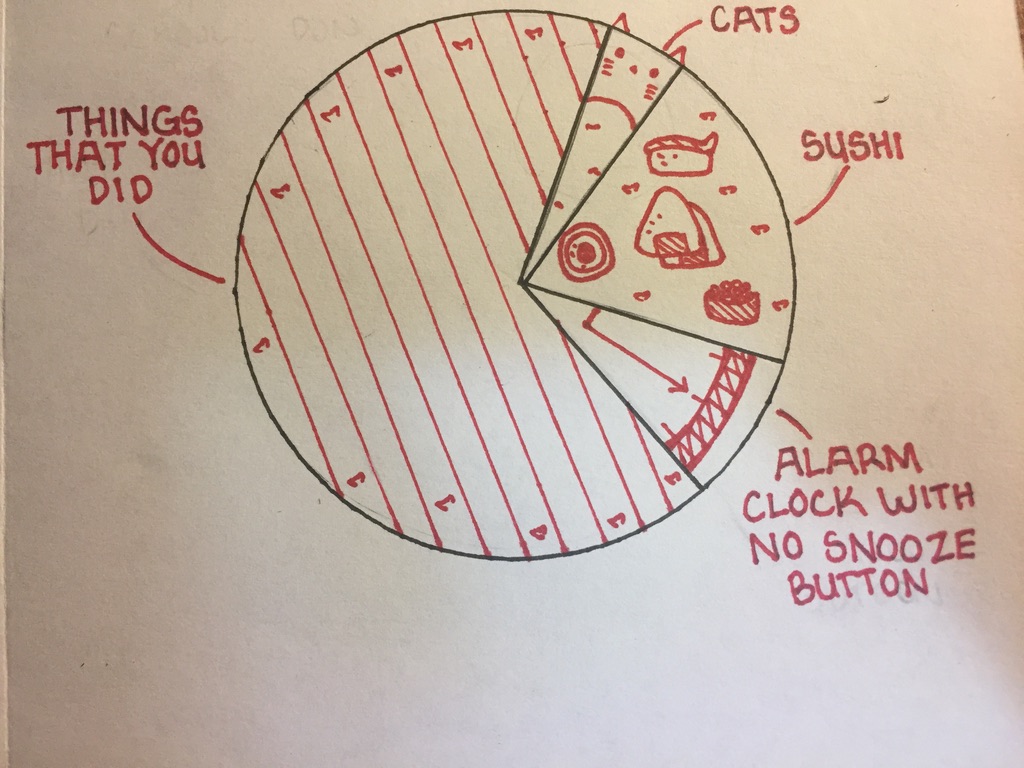 CATS
THINGS
THAT YOU
DID
SUSHI
ALARM
CLOCK WITH
NO SNOOZE
BUTTON